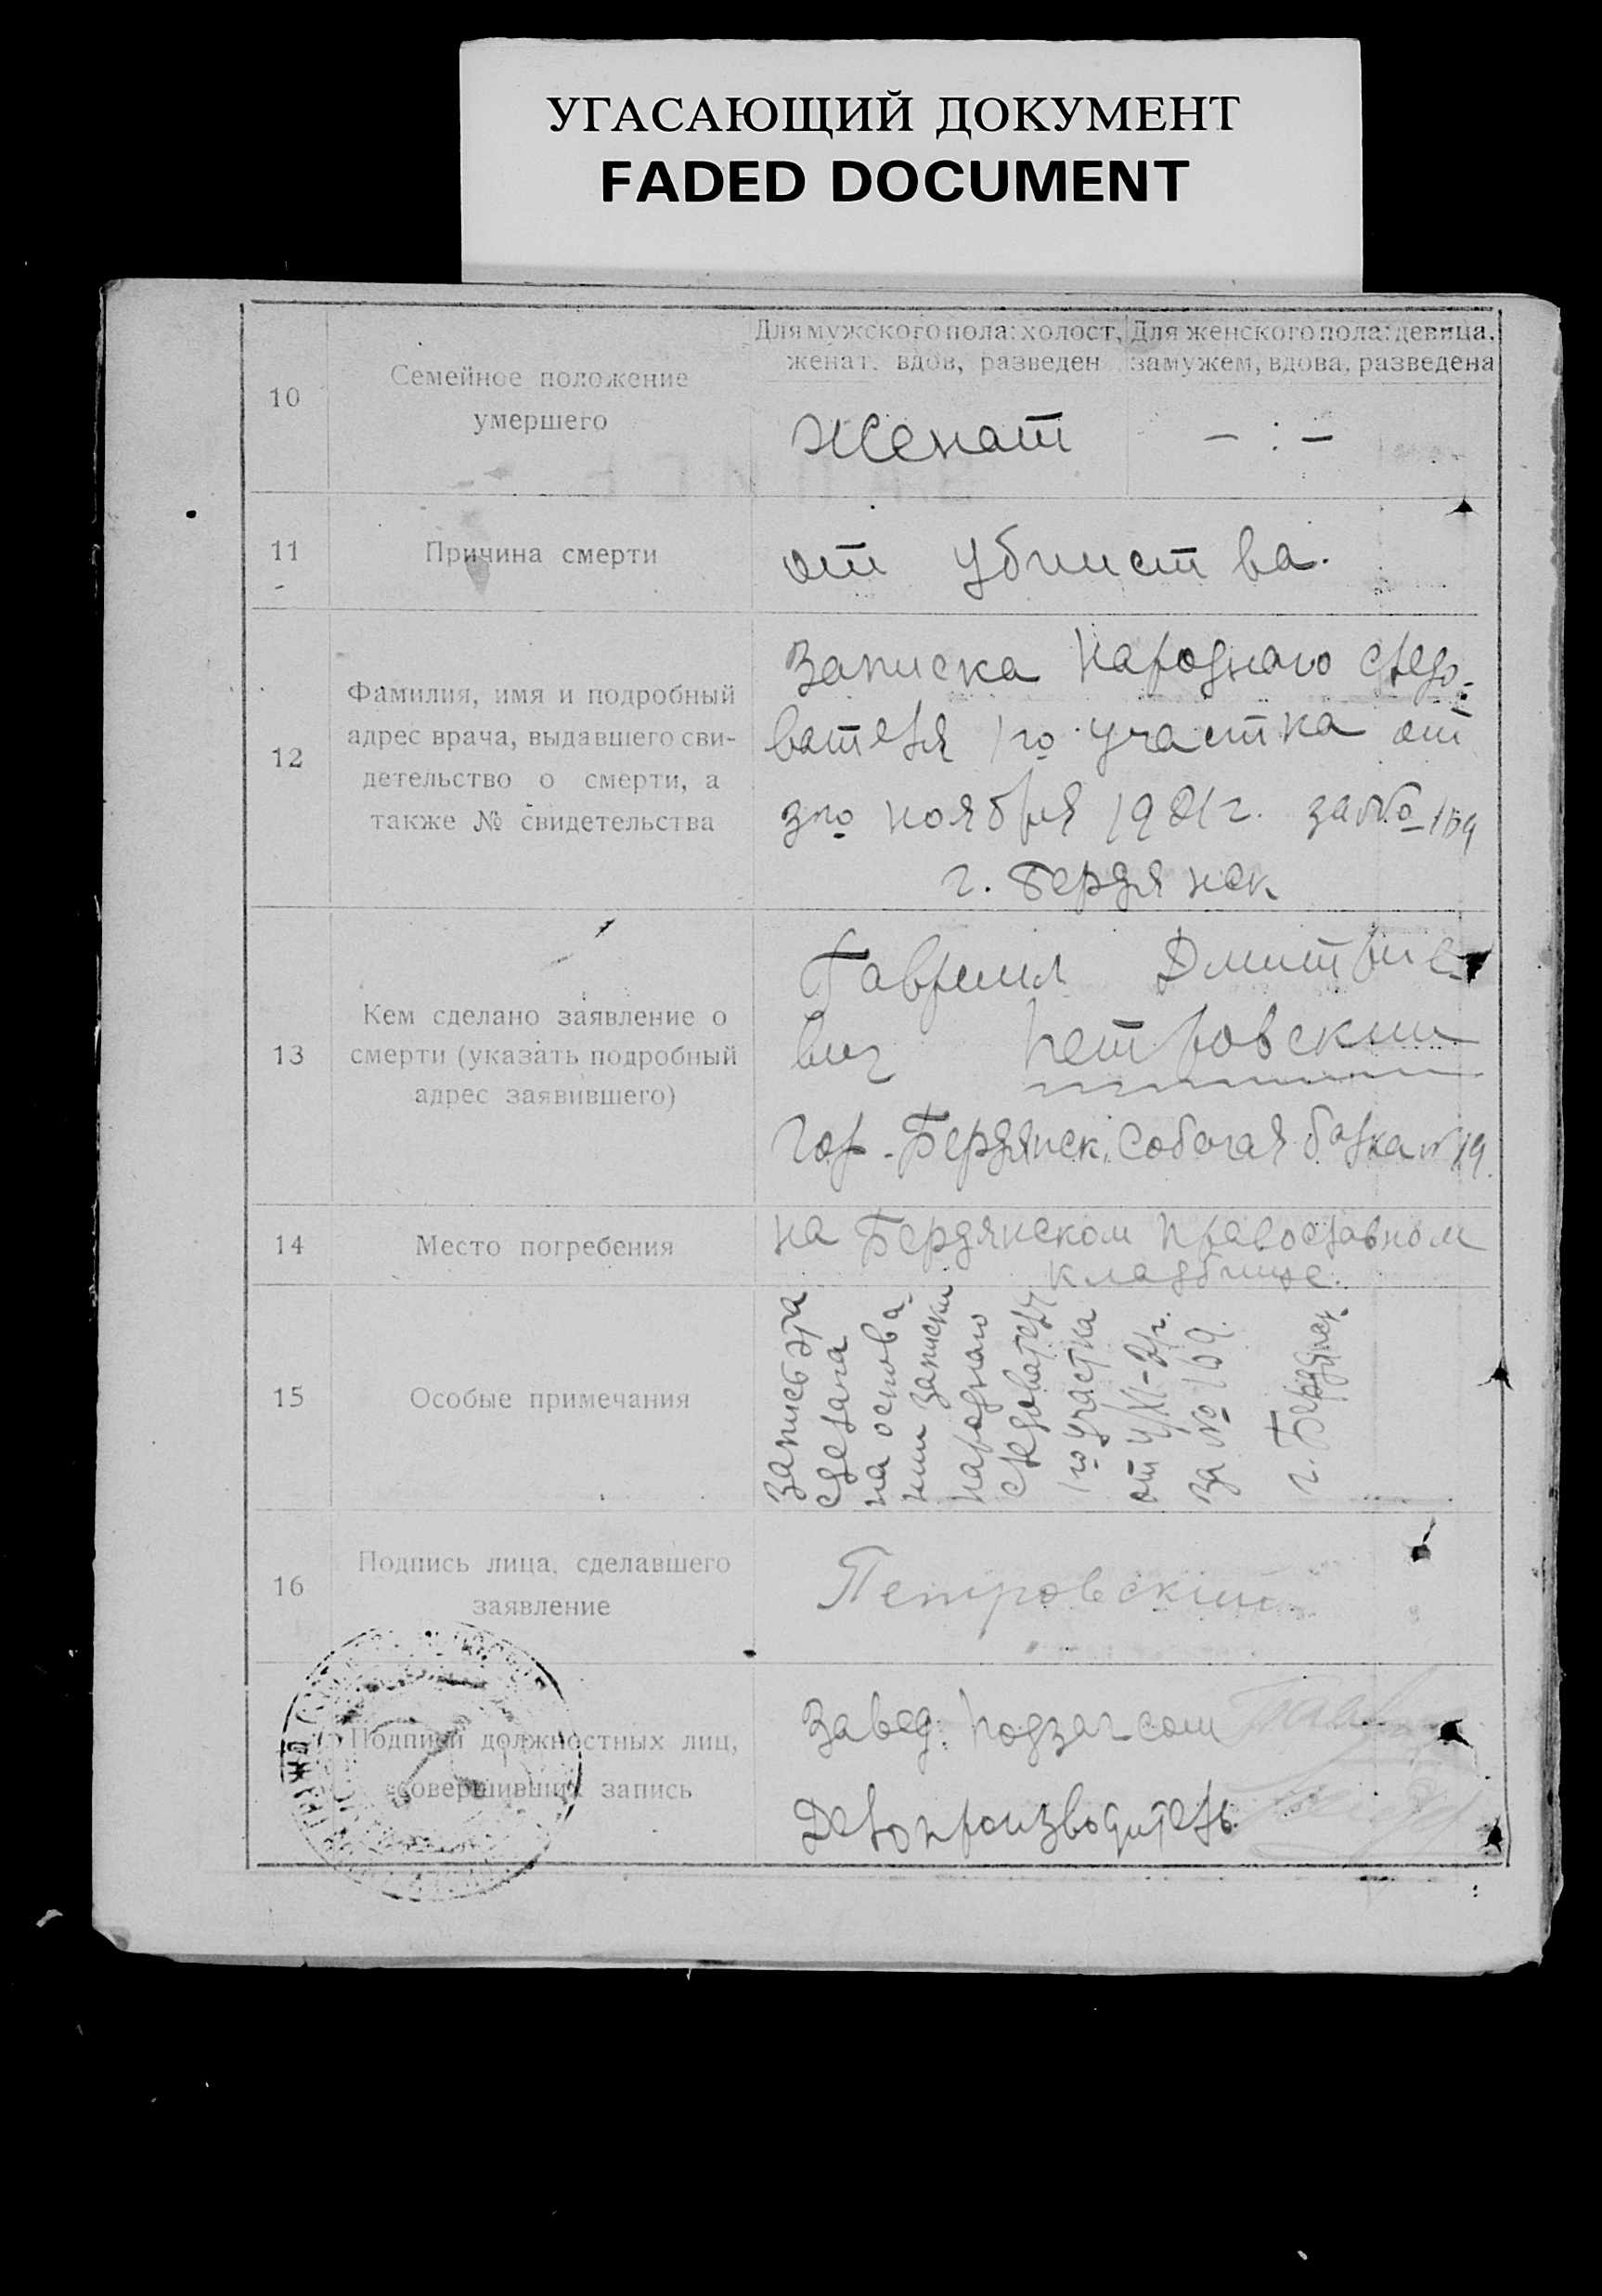 УГАСАЮЩИЙ ДОКУМЕНТ
FADED DOCUMENT
10
Семейное положение
умершего
Для мужского пола: холост,
женат, вдов, разведен
Для женского пола: девица,
замужем, вдова, разведена
Женат
- : -
11
Причина смерти
от убииства.
12
Фамилия, имя и подробный
адрес врача, выдавшего сви-
детельство о смерти, а
также № свидетельства
Записка Народного следо-
вателя 1го участка от
3го ноября 1921 г. за № 109
г. Бердянск
13
Кем сделано заявление о
смерти (указать подробный
адрес заявившего)
Гавриил Дмитрие-
вич Петровскии
Гор. Бердянск, Собачая балка № 19
14
Место погребения
на Бердянском православном
кладбище.
15
Особые примечания
Запись эта
сделана
на основа-
нии записки
народного
следователя
1го участка
от
за № 109.
г. Бердянск.
16
Подпись лица, сделавшего
заявление
Петровский
Подписи должностных лиц,
совершивших запись
Завед. подзагсом
Делопроизводитель